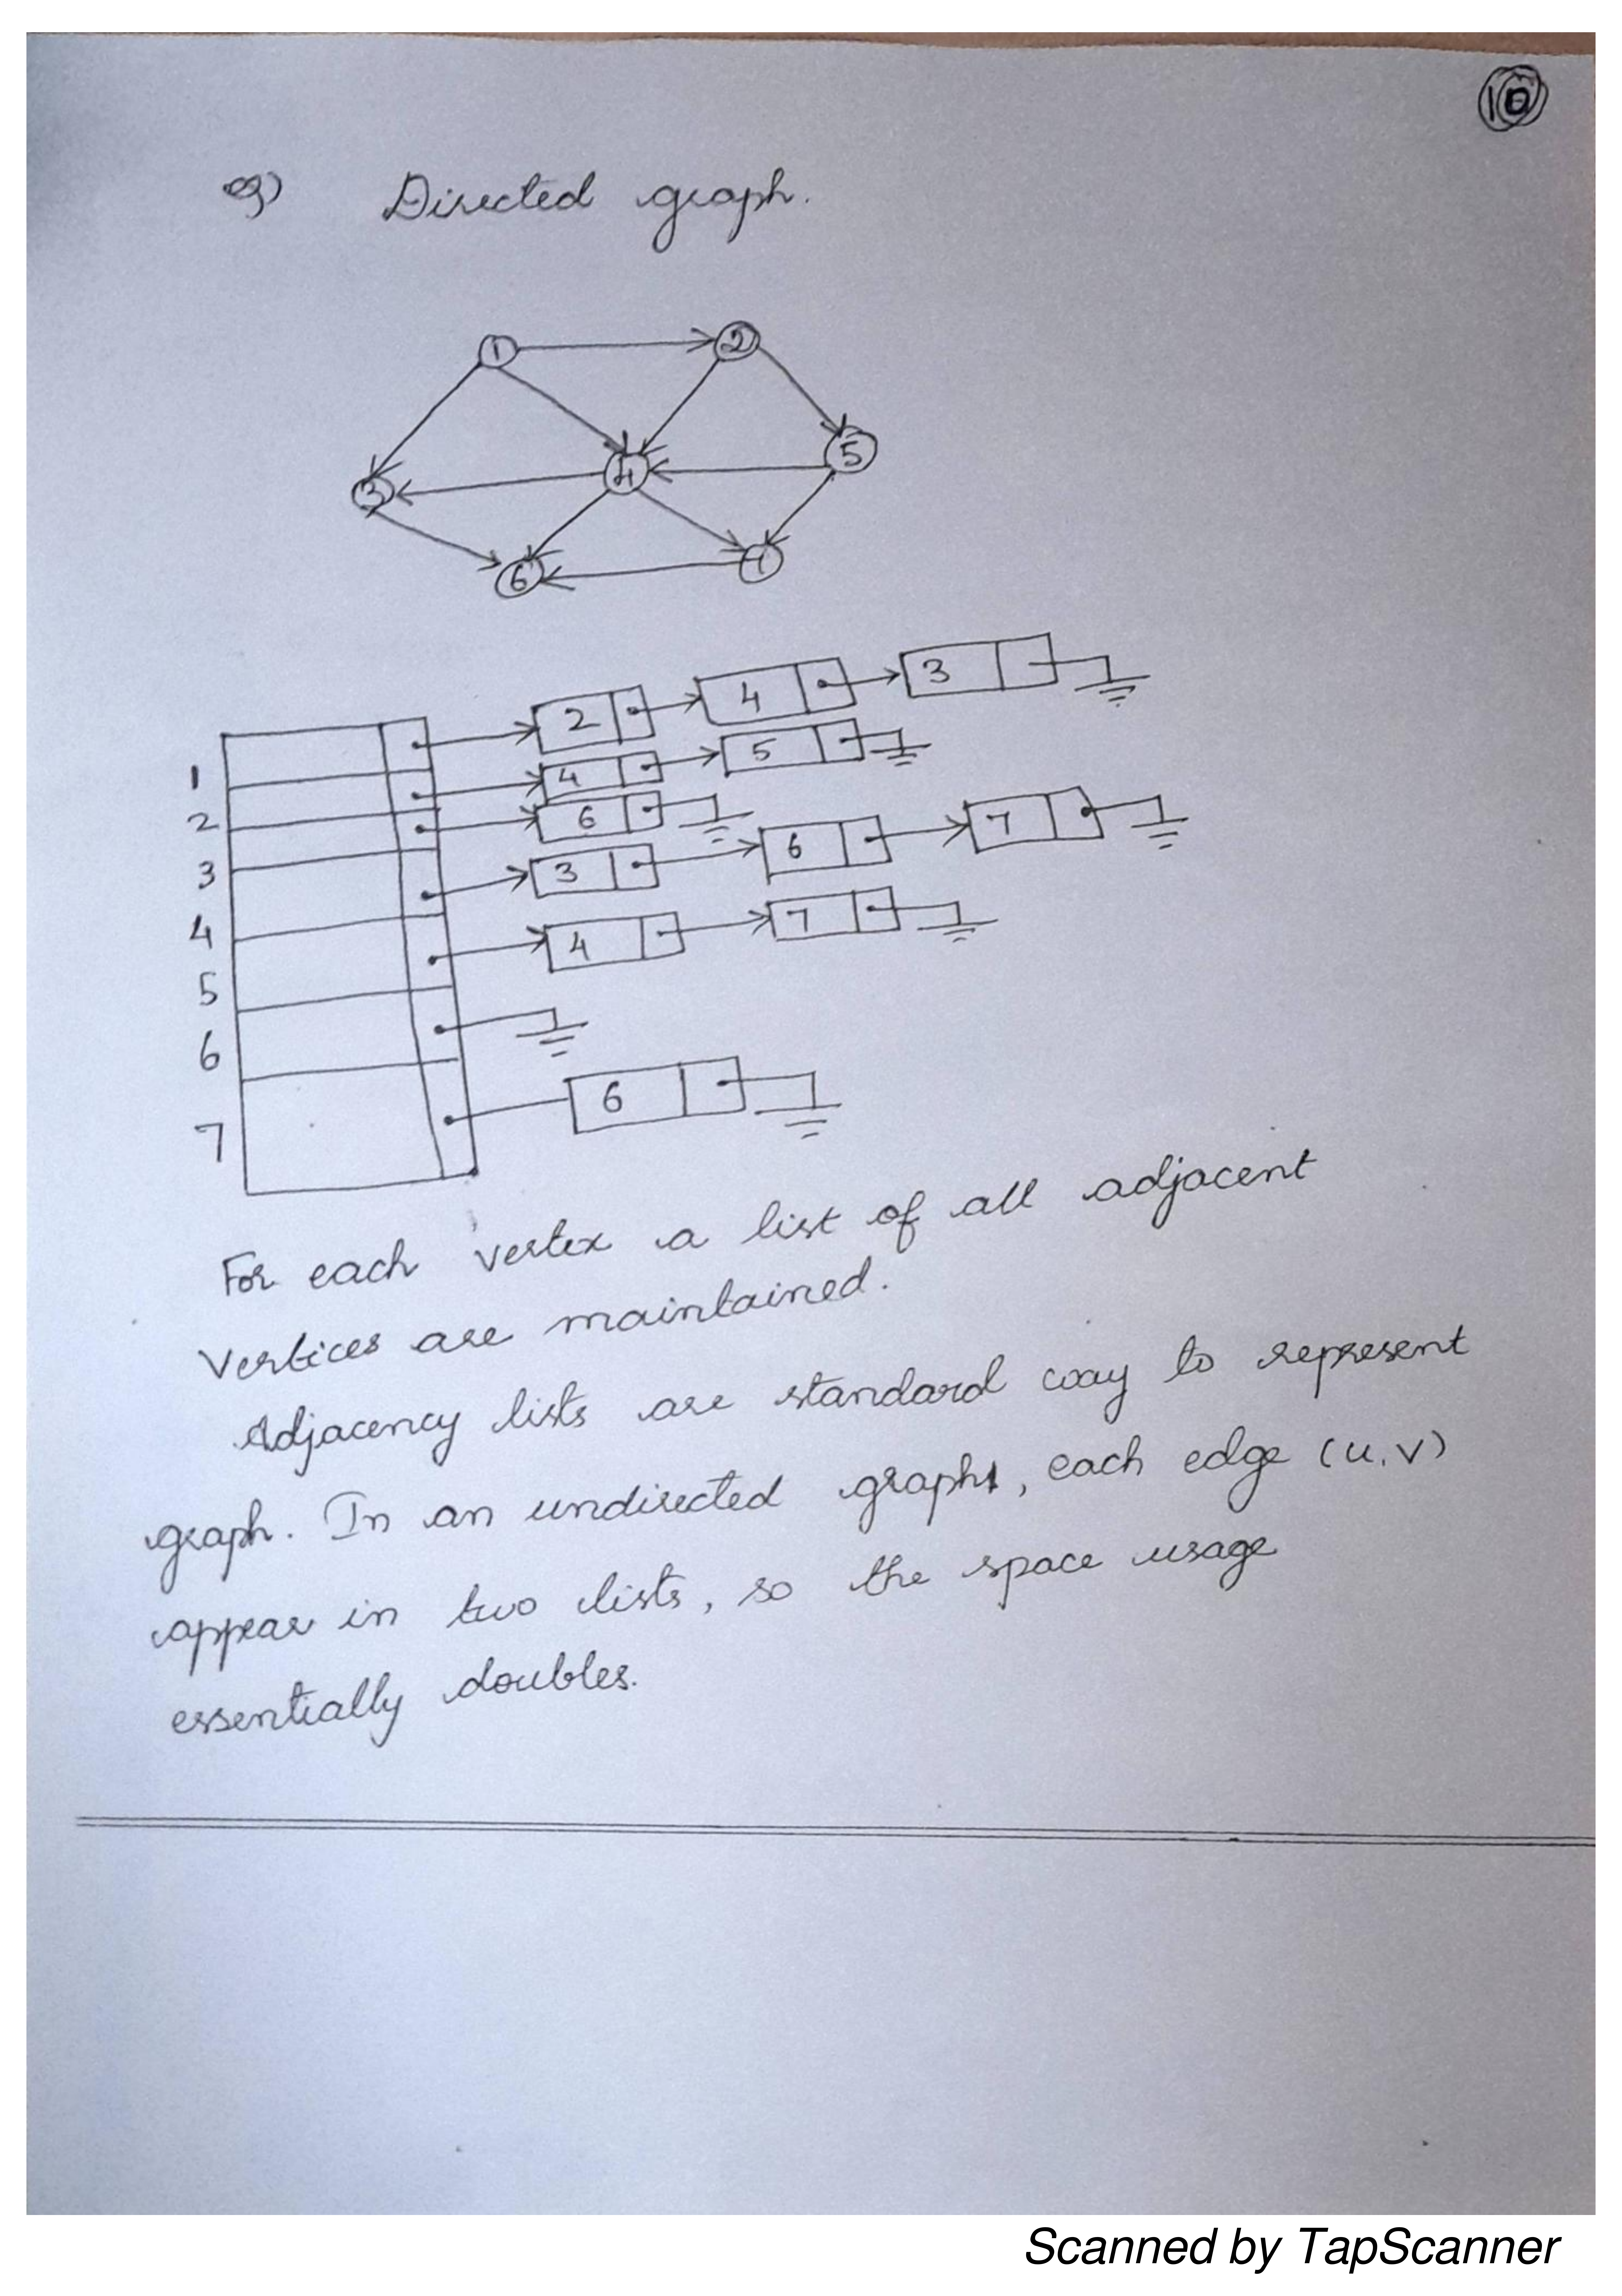 10
eg) Directed graph.
1 2
5
4
3
7
6
1 2 4 3
2 4 5
3 6
4 3 6 7
5 4 7
6
7 6
For each vertex a list of all adjacent
vertices are maintained.
Adjacency lists are standard way to represent
graph. In an undirected graph, each edge (u,v)
appear in two lists, so the space usage
essentially doubles.
Scanned by TapScanner